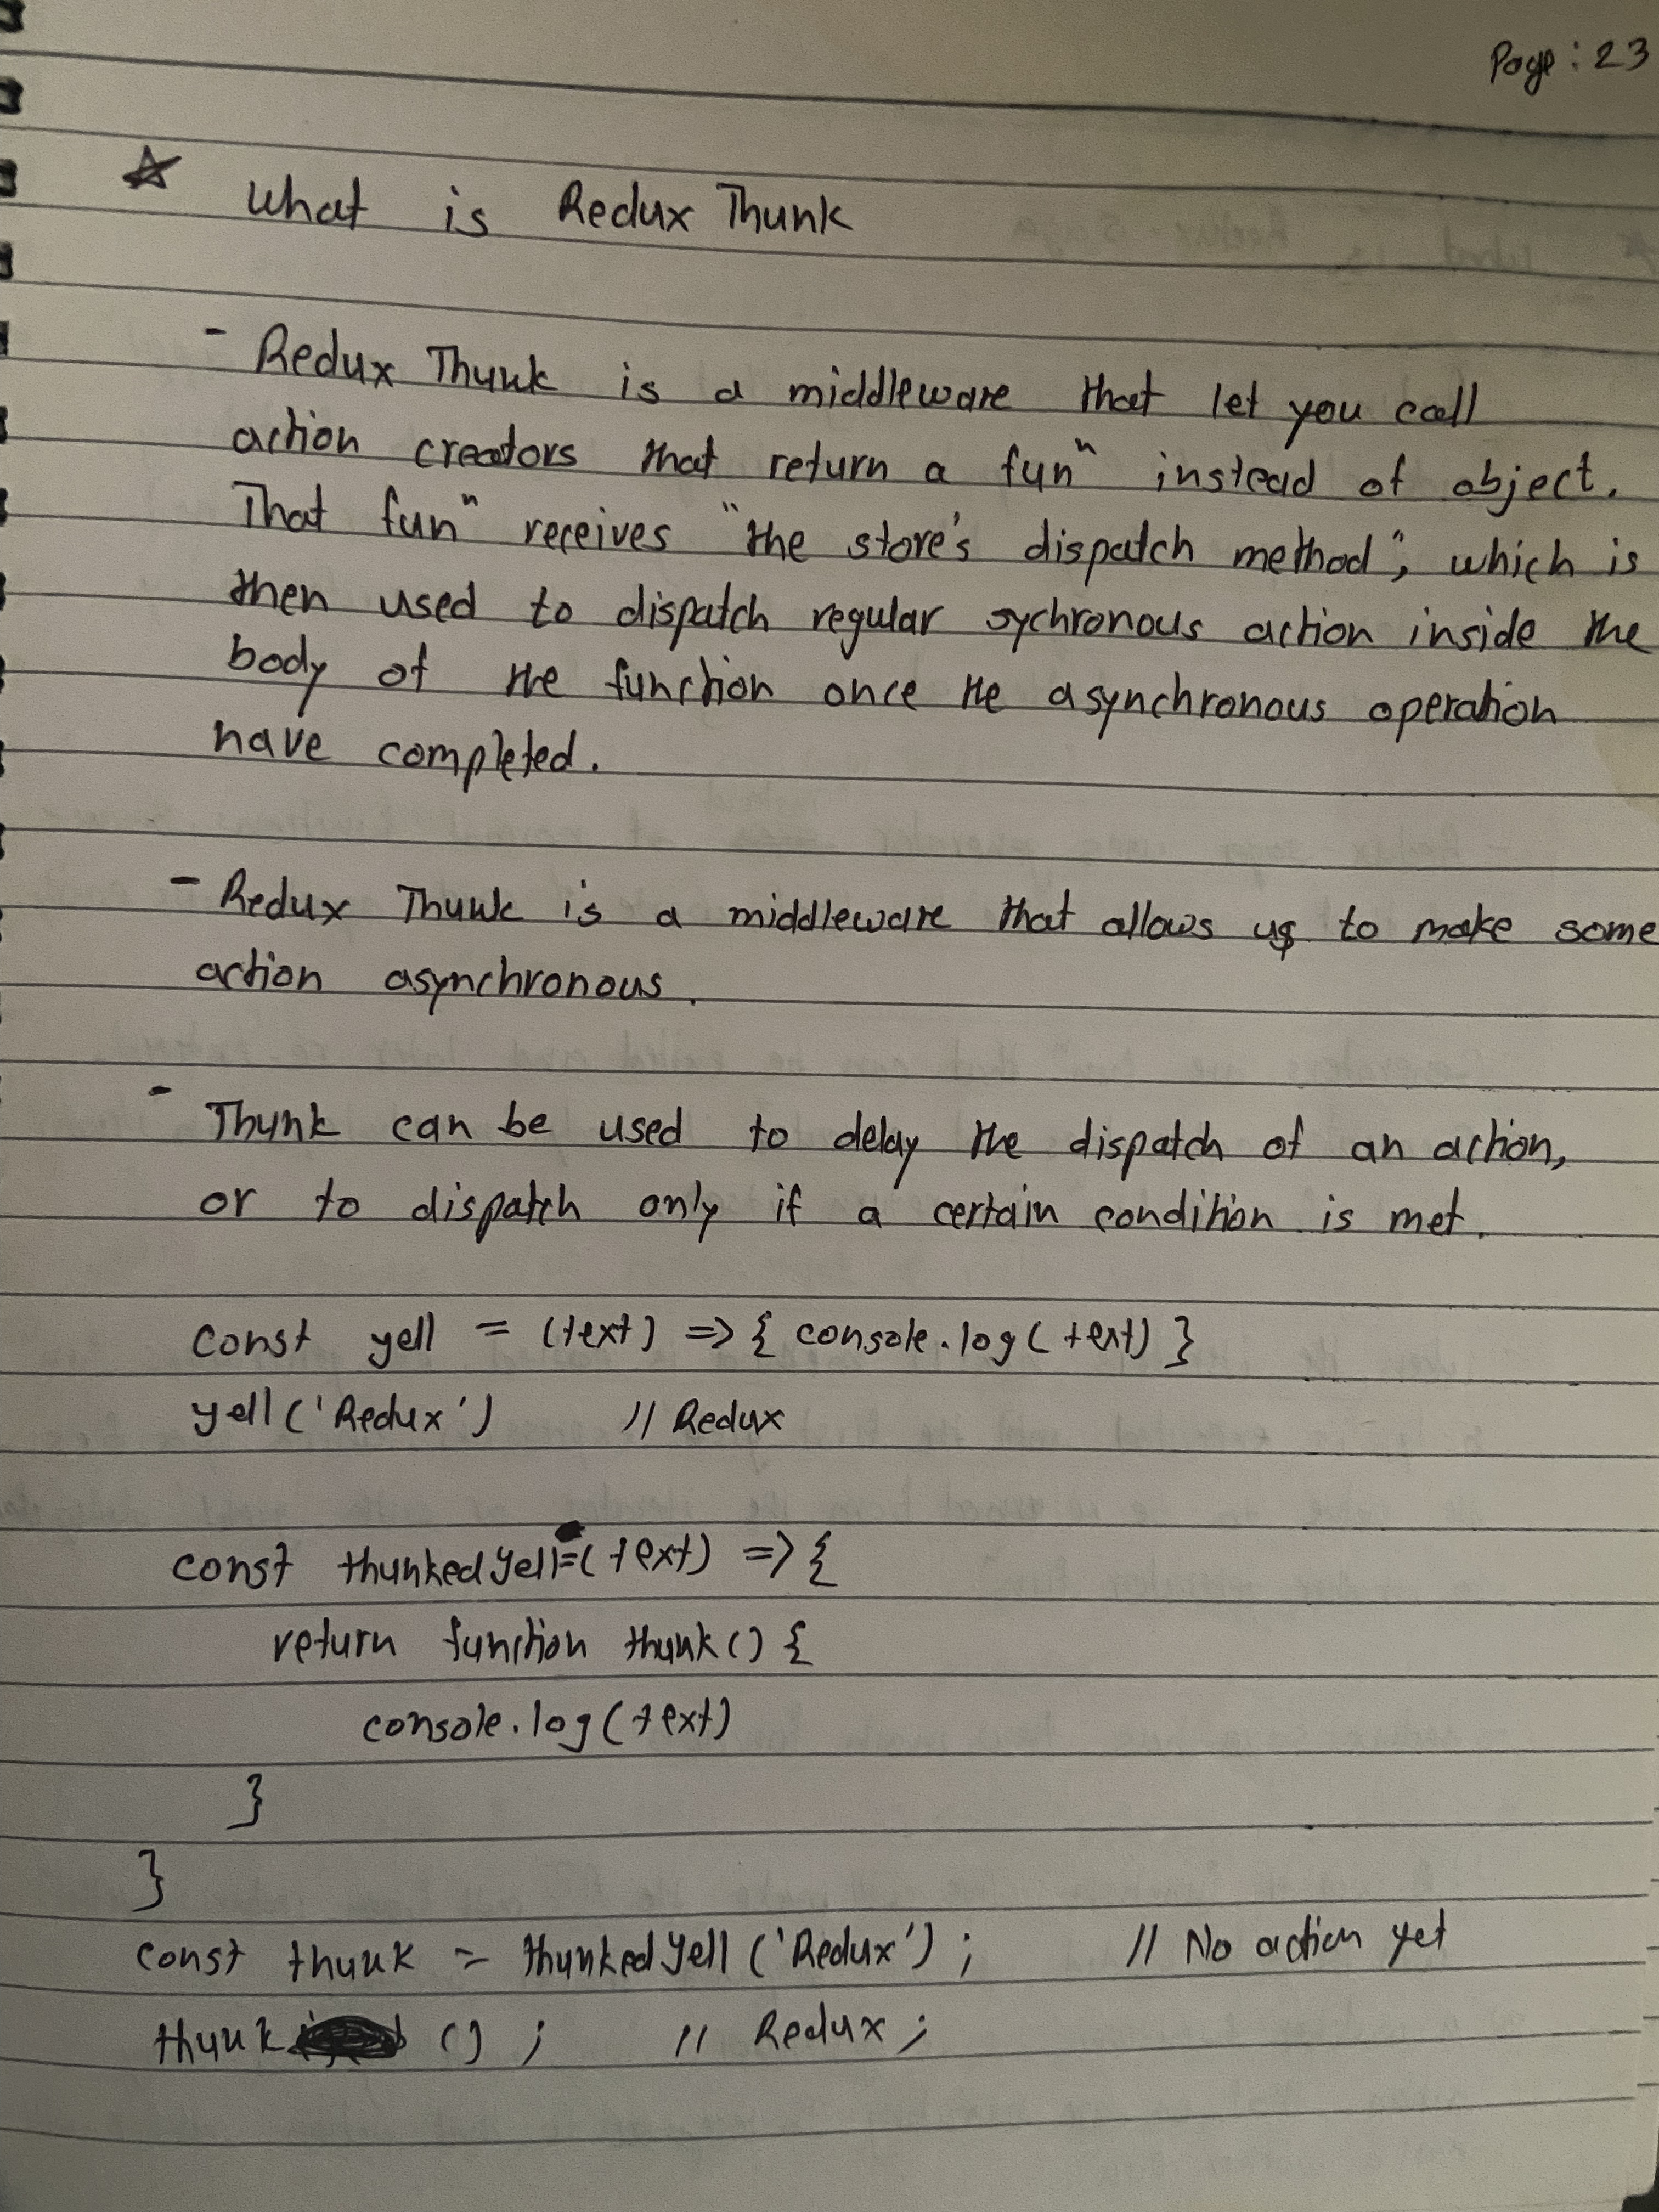 Page : 23
☆ What is Redux Thunk
- Redux Thunk is a middleware that let you call
action creators that return a funⁿ instead of object.
That funⁿ receives "the store's dispatch method", which is
then used to dispatch regular sychronous action inside the
body of the function once the asynchronous operation
have completed.
- Redux Thunk is a middleware that allows us to make some
action asynchronous.
- Thunk can be used to delay the dispatch of an action,
or to dispatch only if a certain condition is met.
const yell = (text) => { console.log( text) }
yell ('Redux') // Redux
const thunkedYell=( text) => {
return function thunk() {
console.log(text)
}
}
const thunk = thunkedYell ('Redux') ; // No action yet
thunk () ; // Redux ;